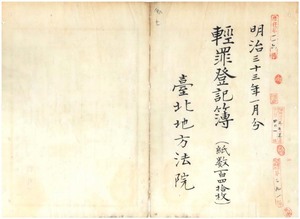 明治三十三年一月分
輕罪登記簿
(紙数百四拾枚)
臺北地方法院